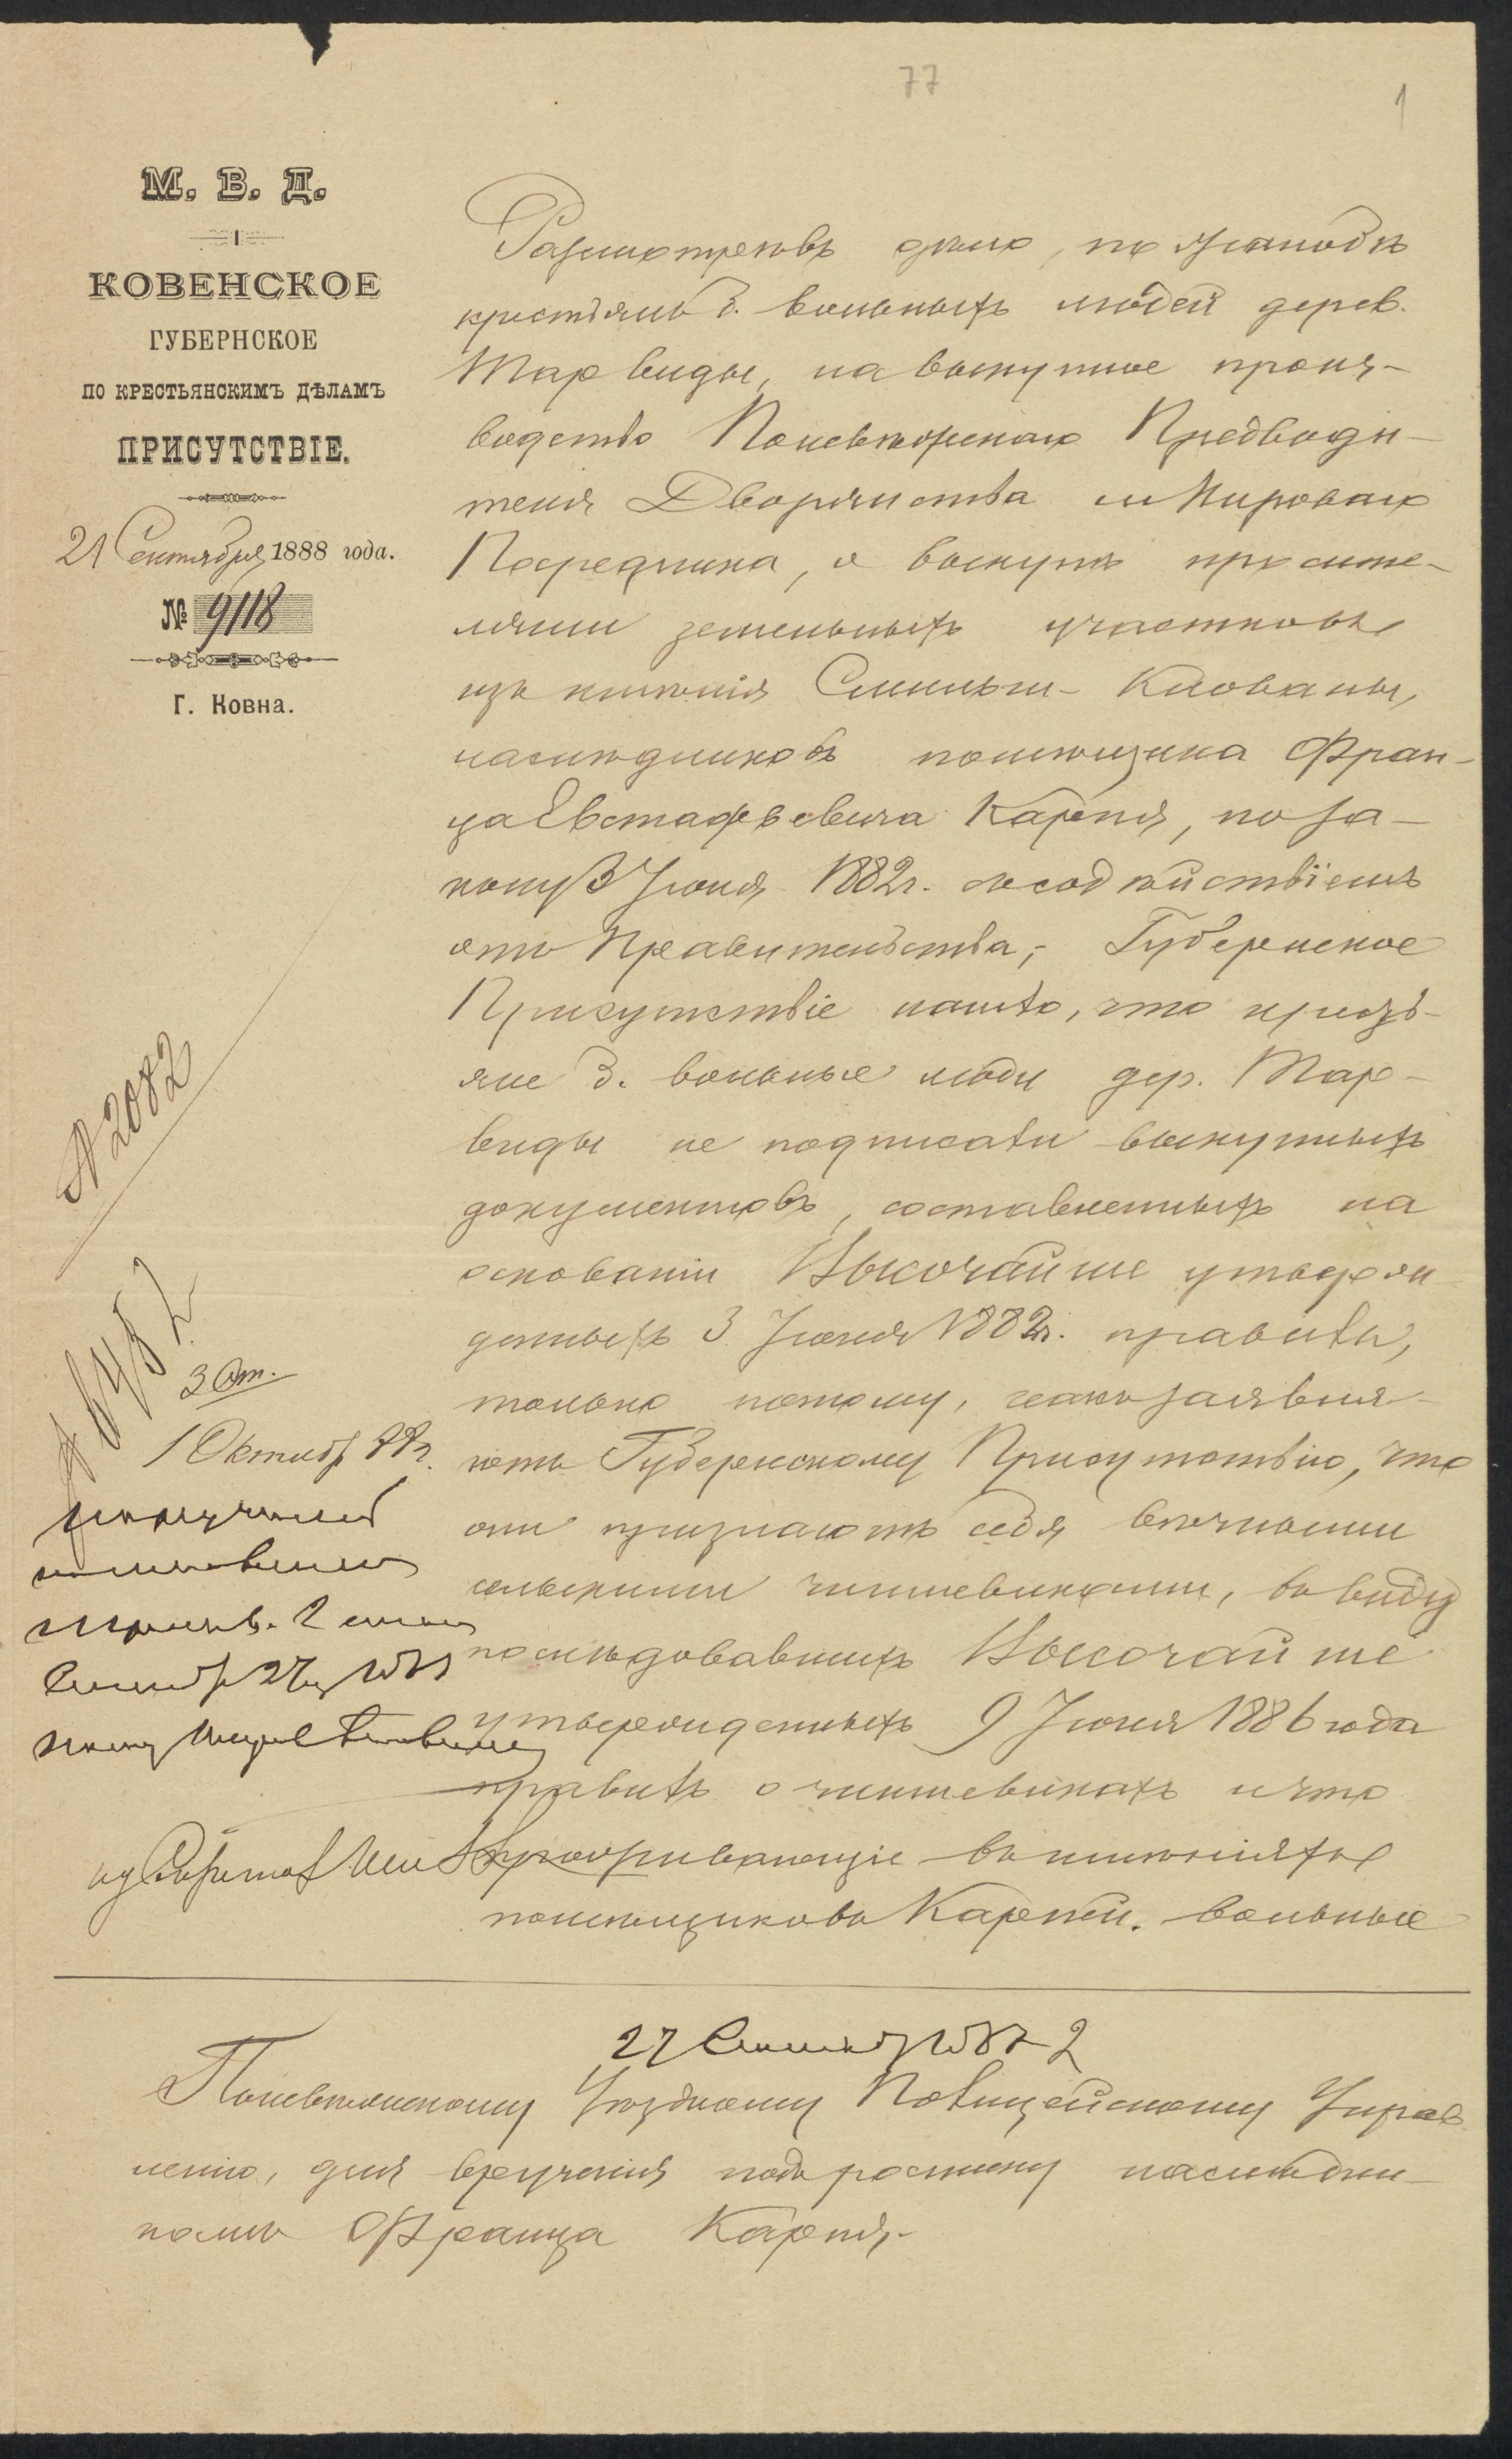 77
1
М. В. Д.
КОВЕНСКОЕ
ГУБЕРНСКОЕ
ПО КРЕСТЬЯНСКИМЪ ДѢЛАМЪ
ПРИСУТСТВІЕ.
21 Сентября 1888 года.
№ 9118
Г. Ковна.
Разсмотрѣвъ дѣло, по жалобѣ
крестьянъ б. вольныхъ людей дерев.
Марвиды, на выкупное произ-
водство Поневѣжскаго Предводи-
теля Дворянства и Мироваго
Посредника, о выкупѣ просите-
лями земельныхъ участковъ
изъ имѣнія Смильги-Клованы,
наслѣдниковъ помѣщика Фран-
ца Евстафьевича Карпя, по за-
кону 3 Іюня 1882 г. съ содѣйствіемъ
отъ Правительства,- Губернское
Присутствіе нашло, что кресть-
яне б. вольные люди дер. Мар-
виды не подписали выкупныхъ
документовъ, составленныхъ на
основаніи Высочайше утверж-
денныхъ 3 Іюня 1882 г. правилъ,
только потому, какъ заявля-
ютъ Губернскому Присутствію, что
они признаютъ себя вѣчными
сельскими чиншевиками, въ виду
послѣдовавшихъ Высочайше
утвержденныхъ 9 Іюня 1886 года
правилъ о чиншевикахъ и что
проживающіе въ имѣніяхъ
помѣщиковъ Карпей. вольные
№ 2082
3 Ст.
1 Октябр 88 г.
27 Сентября 1888 г.
Поневѣжскому Уѣздному Полицейскому Управ
ленію, для врученія подъ росписку наслѣдни-
камъ Франца Карпя.-